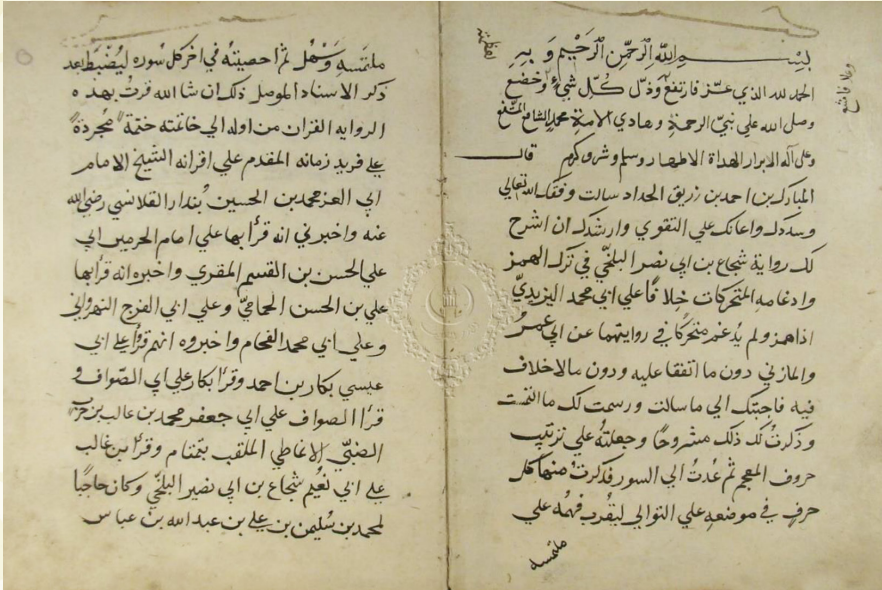 بسم الله الرحمن الرحيم وبه
الحمد لله الذي عز فارتفع وذل كل شيء وخضع
وصل الله علي نبي الرحمة وهادي الامة محمد الشافع المشفع
وعلي آله الابرار الهداة الاطهار وسلم وشرف وكرم قال
المبارك بن احمد بن زريق الحداد سالت وفقك الله تعالي
وسددك واعانك علي التقوي وارشدك ان اشرح
لك رواية شجاع بن ابي نصر البلخي في ترك الهمز
وادغامه المتحركات خلافا علي ابي محمد اليزيدي
اذا همز ولم يدغم متحركا في روايتهما عن ابي عمرو
والمازني دون ما اتفقا عليه ودون ما لا خلاف
فيه فاجبتك الي ما سالت ورسمت لك ما التمست
وذكرت لك ذلك مشروحا وجعلته علي ترتيب
حروف المعجم ثم عدت الي السور فذكرت منها كل
حرف في موضعه علي التوالي ليقرب فهمه علي
ملتمسه
ملتمسه وسهل ثم احصيته في اخر كل سوره ليضبط بعد
ذكر الاسناد الموصل ذلك ان شا الله قرت بهذه
الروايه القران من اوله الي خاتمته ختمة مجردة
علي فريد زمانه المقدم علي اقرانه الشيخ الامام
ابي العز محمد بن الحسين بندار القلانسي رضي الله
عنه واخبرني انه قرا بها علي امام الحرمين ابي
علي الحسن بن القسم المقري واخبره انه قرا بها
علي بن الحسن الحمامي وعلي ابي الفرج النهرواني
وعلي ابي محمد الفحام واخبروه انهم قرؤا علي ابي
عيسي بكار بن احمد وقرا بكار علي ابي الصواف و
قرا الصواف علي ابي جعفر محمد بن غالب بن حرب
الضبي الانماطي الملقب بتمتام وقرا بن غالب
علي ابي نعيم شجاع بن ابي نصير البلخي وكان حاجبا
لمحمد بن سليمن بن علي بن عبد الله بن عباس